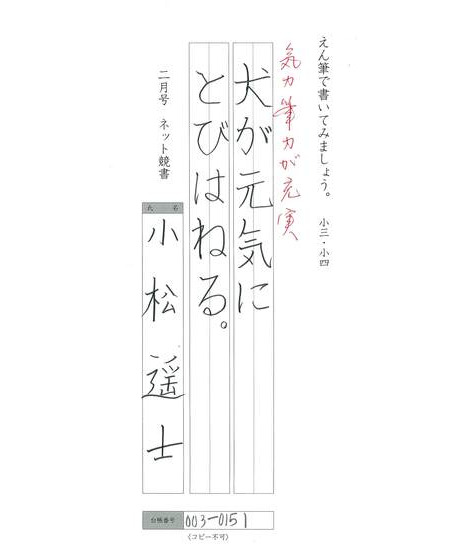 えん筆で書いてみましょう。 小三・小四
気力筆力が充実
犬が元気に
とびはねる。
二月号 ネット競書
氏名
小松遥士
台帳番号 003-0151
(コピー不可)